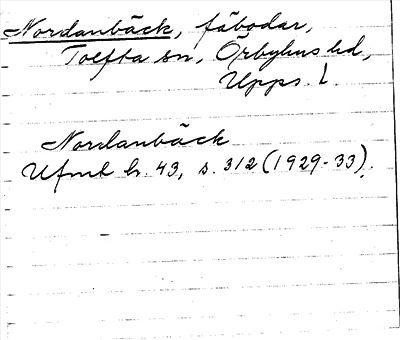 Nordanbäck, fäbodar,
Tolfta sn, Örbyhus hd,
Upps. l.
Nordanbäck
Ufmt h. 43, s. 312 (1929-33).